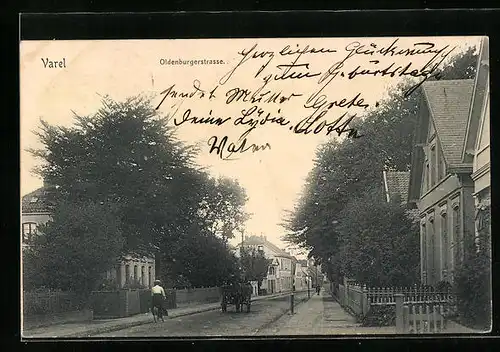 Varel
Oldenburgerstrasse.
Herzlichen Glückwunsch
zum Geburtstag
sendet Grete
Deine Lydia. Lotte